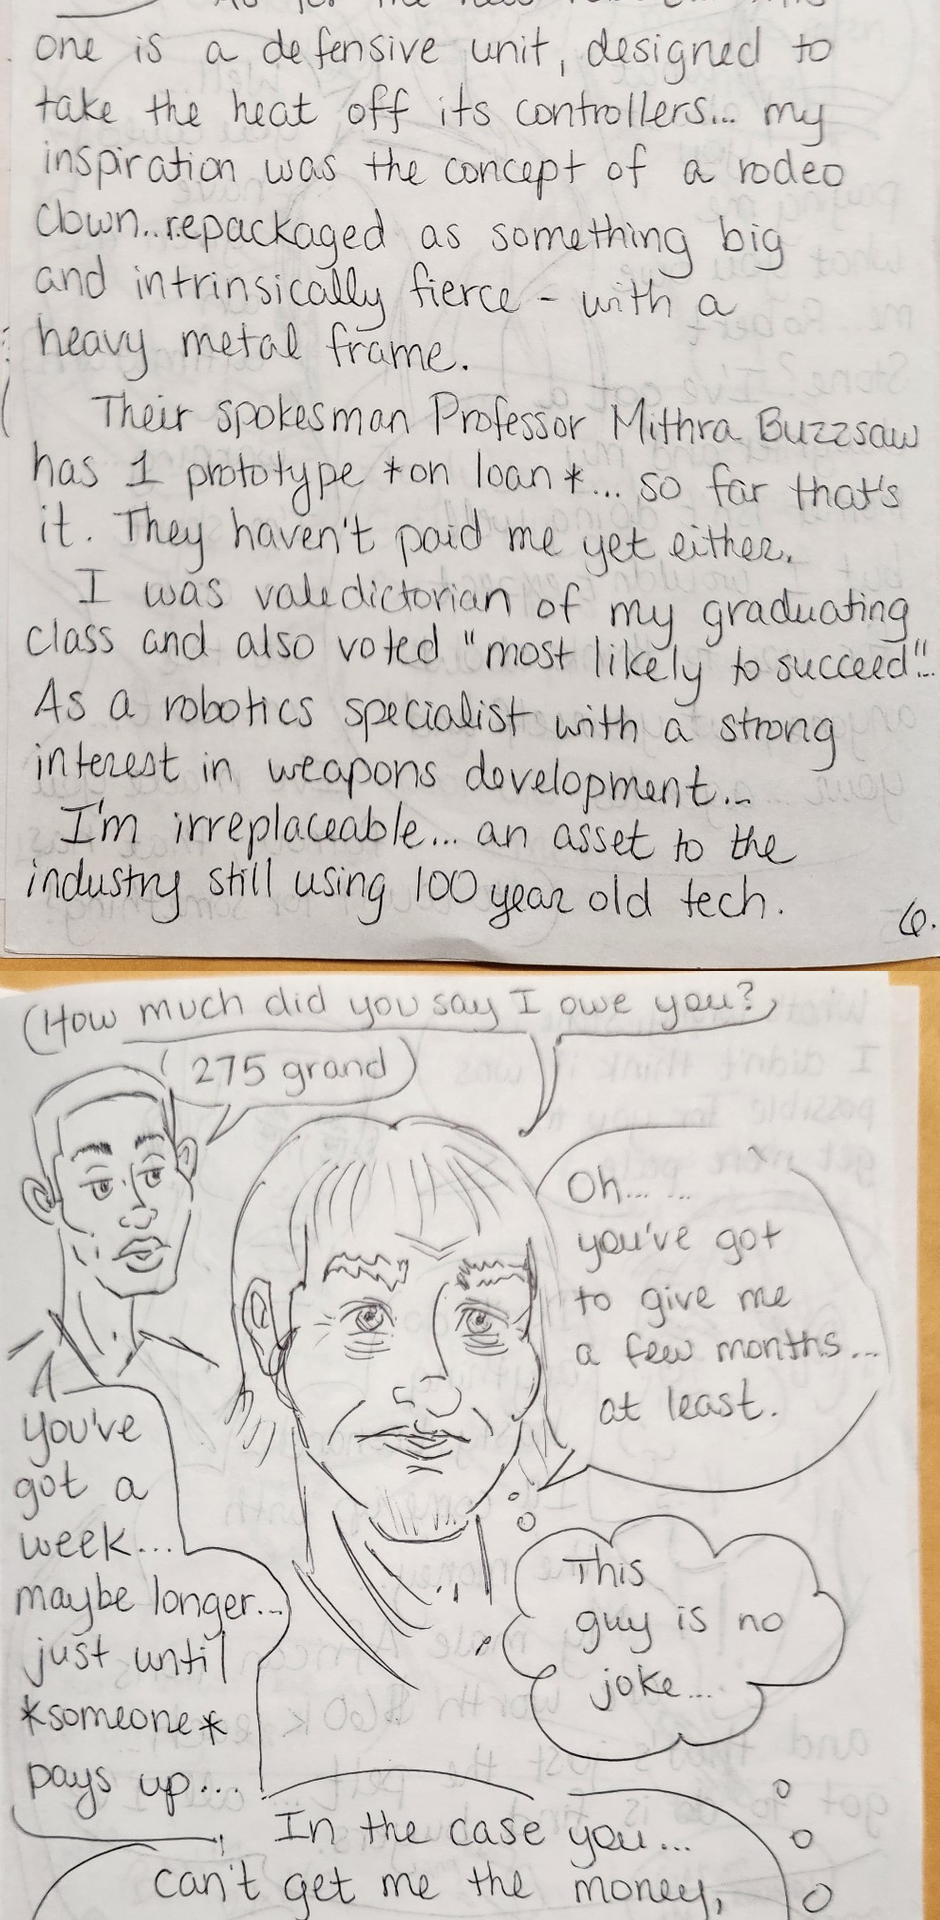 As for the new robot... this
one is a defensive unit, designed to
take the heat off its controllers... my
inspiration was the concept of a rodeo
clown...repackaged as something big
and intrinsically fierce - with a
heavy metal frame.
Their spokesman Professor Mithra Buzzsaw
has 1 prototype *on loan*... so far that's
it. They haven't paid me yet either.
I was valedictorian of my graduating
class and also voted "most likely to succeed"...
As a robotics specialist with a strong
interest in weapons development...
I'm irreplaceable... an asset to the
industry still using 100 year old tech.
6.
How much did you say I owe you?
275 grand
Oh... ...
you've got
to give me
a few months...
at least.
You've
got a
week...
maybe longer...
just until
*someone*
pays up...
This
guy is no
joke...
In the case you...
can't get me the money,